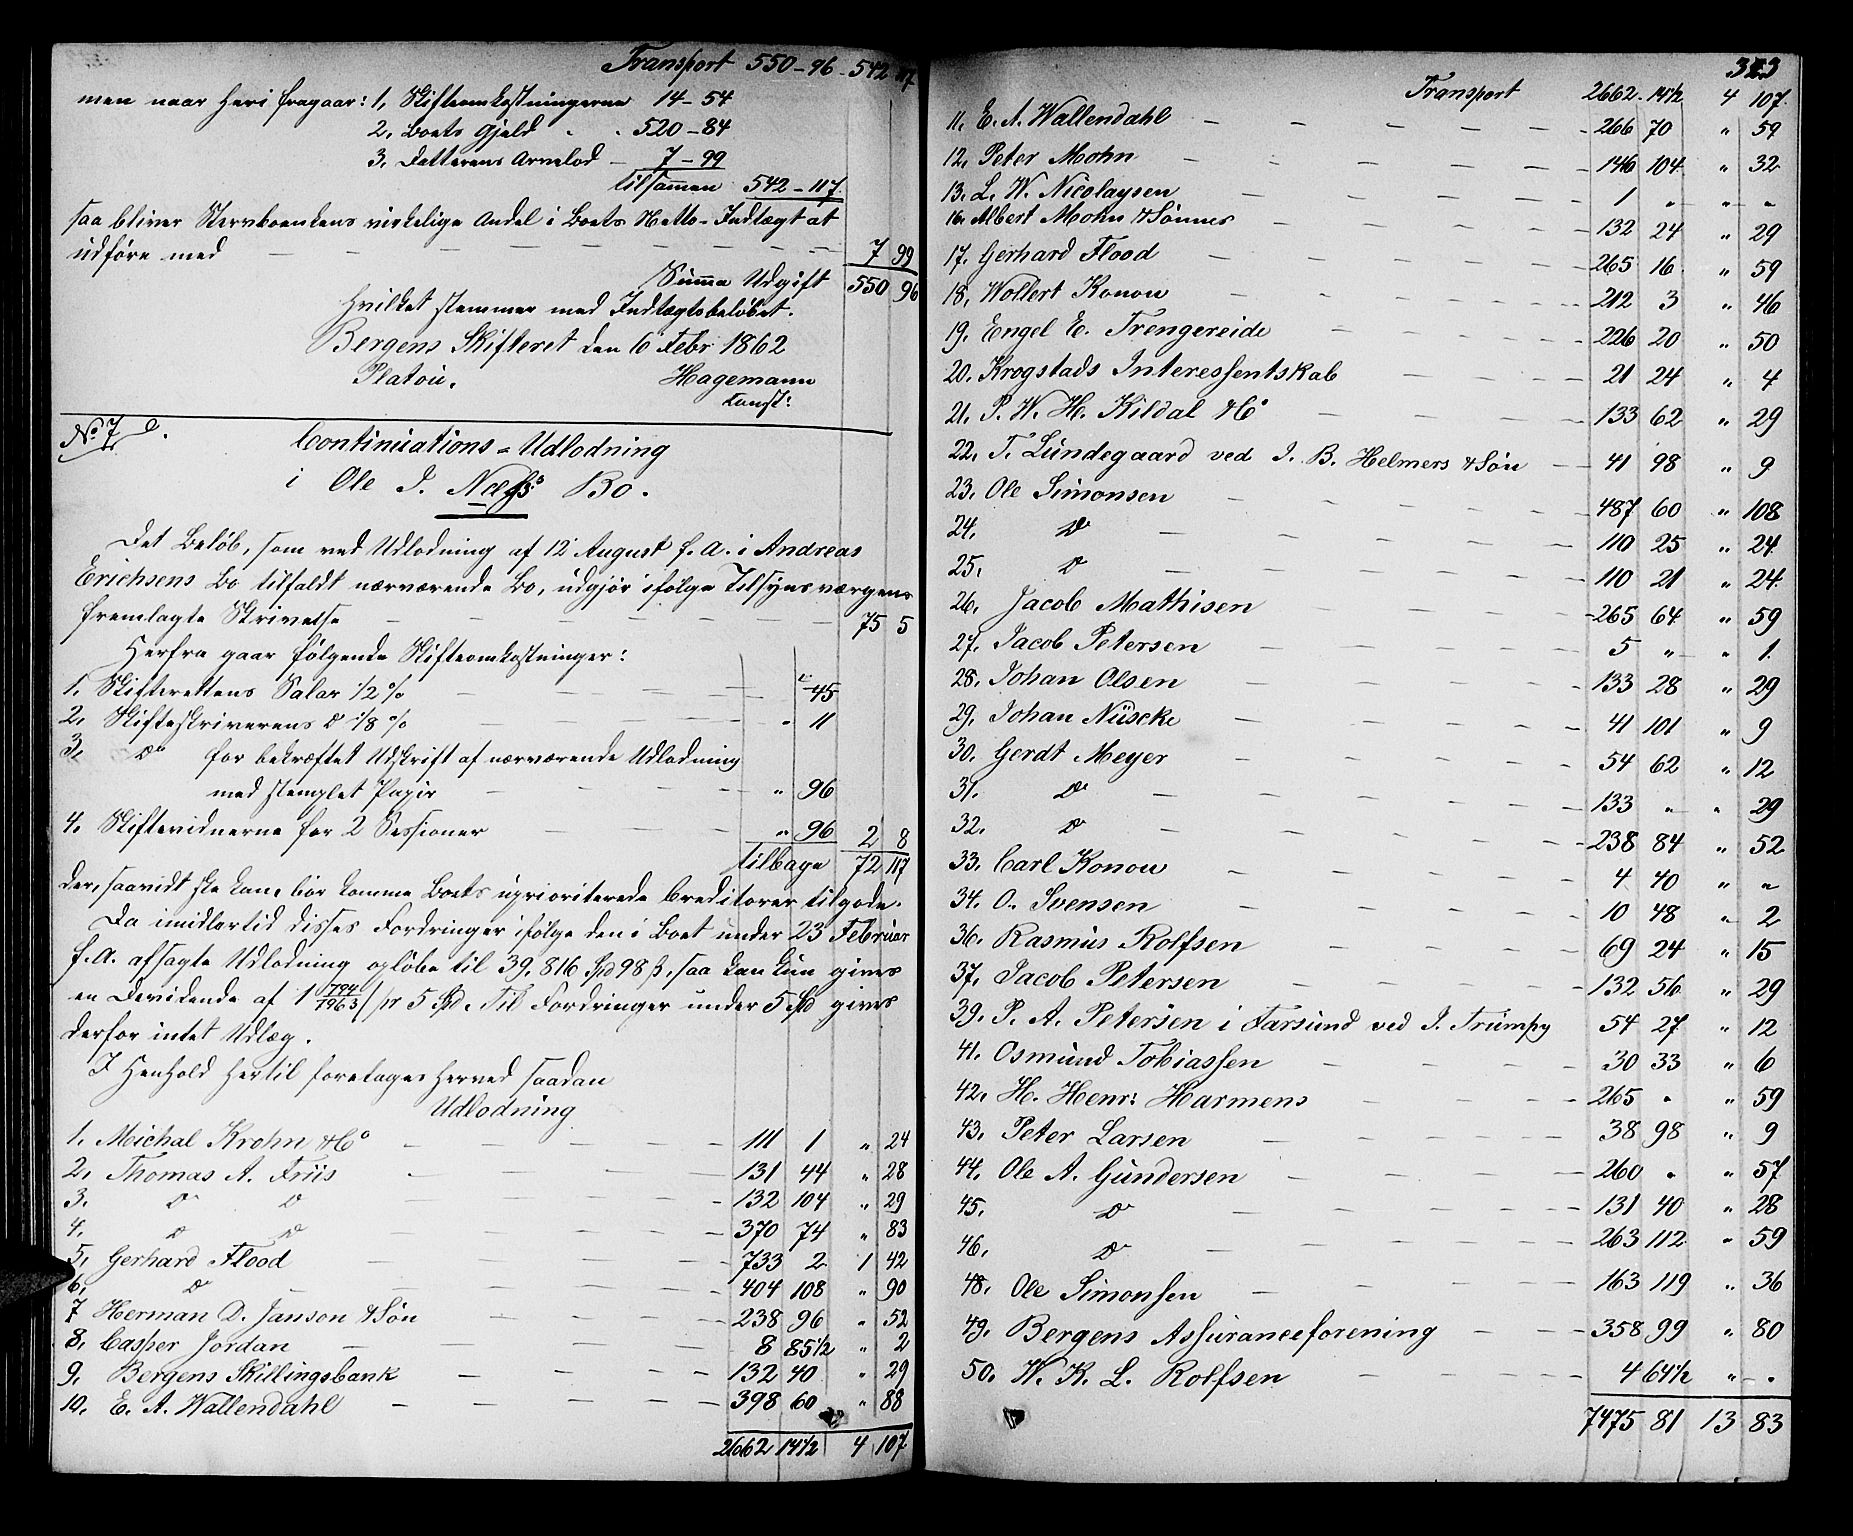 Transport 550-96-542 117
men naar heri fragaar: 1, Skifteomkostningerne 14-54
2, Boets Gjeld - - 520-84
3, Datterens Arvelod - 7-99
tilsammen 542-117.
saa bliver Stervboenkens virkelige Andel i Boets Netto-Indtægt at
udföre med 7 99
Summa Udgift 550 96
hvilket stemmer med Indtægtsbeløbet.
Bergens Skifteret den 6 Febr 1862
Platou. Hagemann
const:
No. 7
Continuations-Udlodning
i Ole J. Næss' Bo.
Det Beløb, som ved Udlodning af 12 August f. A. i Andreas
Erichsens Bo tilfaldt nærværende Bo, udgjør ifølge Tilsynsværgens
fremlagte Skrivelse 75 5
Herfra gaar følgende Skifteomkostninger:
1. Skifterettens Salar 1/2 % " 45
2. Skifteskriverens do 1/8 % " 11
3. do for bekræftet Udskrift af nærværende Udlodning
med stemplet Papir " 96
4. Skiftevidnerne for 2 Sessioner " 96 2 8
tilbage 72 117
der, saavidt ske kan, bør komme Boets uprioriterede Creditorer tilgode.
Da imidlertid disses Fordringer ifølge den i Boet under 23 Februar
f. A. afsagte Udlodning opløbe til 39,816 Spd 98 ß, saa kan kun gives
en Devidende af 1 794/7963 ß pr 5 Spd. Til Fordringer under 5 Spd gives
derfor intet Udlæg.
I Henhold hertil foretages herved saadan
Udlodning
1. Michal Krohn & Co 111 1 " 24
2, Thomas A. Friis 131 44 " 28
3. do do 132 104 " 29
4. do do 370 74 " 83
5, Gerhard Flood 733 2 1 42
6, do 404 108 " 90
7 Herman D. Janson & Søn 238 96 " 52
8. Casper Jordan 8 85 1/2 " 2
9, Bergens Skillingsbank 132 40 " 29
10, E. A. Wallendahl 398 60 " 88
2662 14 1/2 4 107
Transport 2662 14 1/2 4 107.
11, E. A. Wallendahl 266 70 " 59
12, Peter Mohn 146 104 " 32
13. L. W. Nicolaysen 1 " " "
16, Albert Mohn & Sønner 132 24 " 29
17. Gerhard Flood 265 16 " 59
18, Wollert Konow 212 3 " 46
19, Engel E. Trengereide 226 20 " 50
20. Krogstads Interessentskab 21 24 " 4
21. P. W. H. Kildal & Co 133 62 " 29
22. T. Lundegaard ved J. B. Helmers & Søn 41 98 " 9
23. Ole Simonsen 487 60 " 108
24. do 110 25 " 24
25. do 110 21 " 24
26. Jacob Mathisen 265 64 " 59
27. Jacob Petersen 5 " " 1
28. Johan Olsen 133 28 " 29
29, Johan Nüscke 41 101 " 9
30. Gerdt Meyer 54 62 " 12
31. do 133 " " 29
32. do 238 84 " 52
33. Carl Konow 4 40 " "
34. O. Svensen 10 48 " 2
36. Rasmus Rolfsen 69 24 " 15
37. Jacob Petersen 132 56 " 29
39. P. A. Petersen i Farsund ved J. Trumpy 54 27 " 12
41. Osmund Tobiassen 30 33 " 6
42, H. Henr: Harmens 265 " " 59
43. Peter Larsen 38 98 " 9
44. Ole A. Gundersen 260 " " 57
45. do 131 40 " 28
46. do 263 112 " 59
48. Ole Simonsen 163 119 " 36
49. Bergens Assuranceforening 358 99 " 80
50. W. K. L. Rolfsen 4 64 1/2 " "
7475 81 13 83